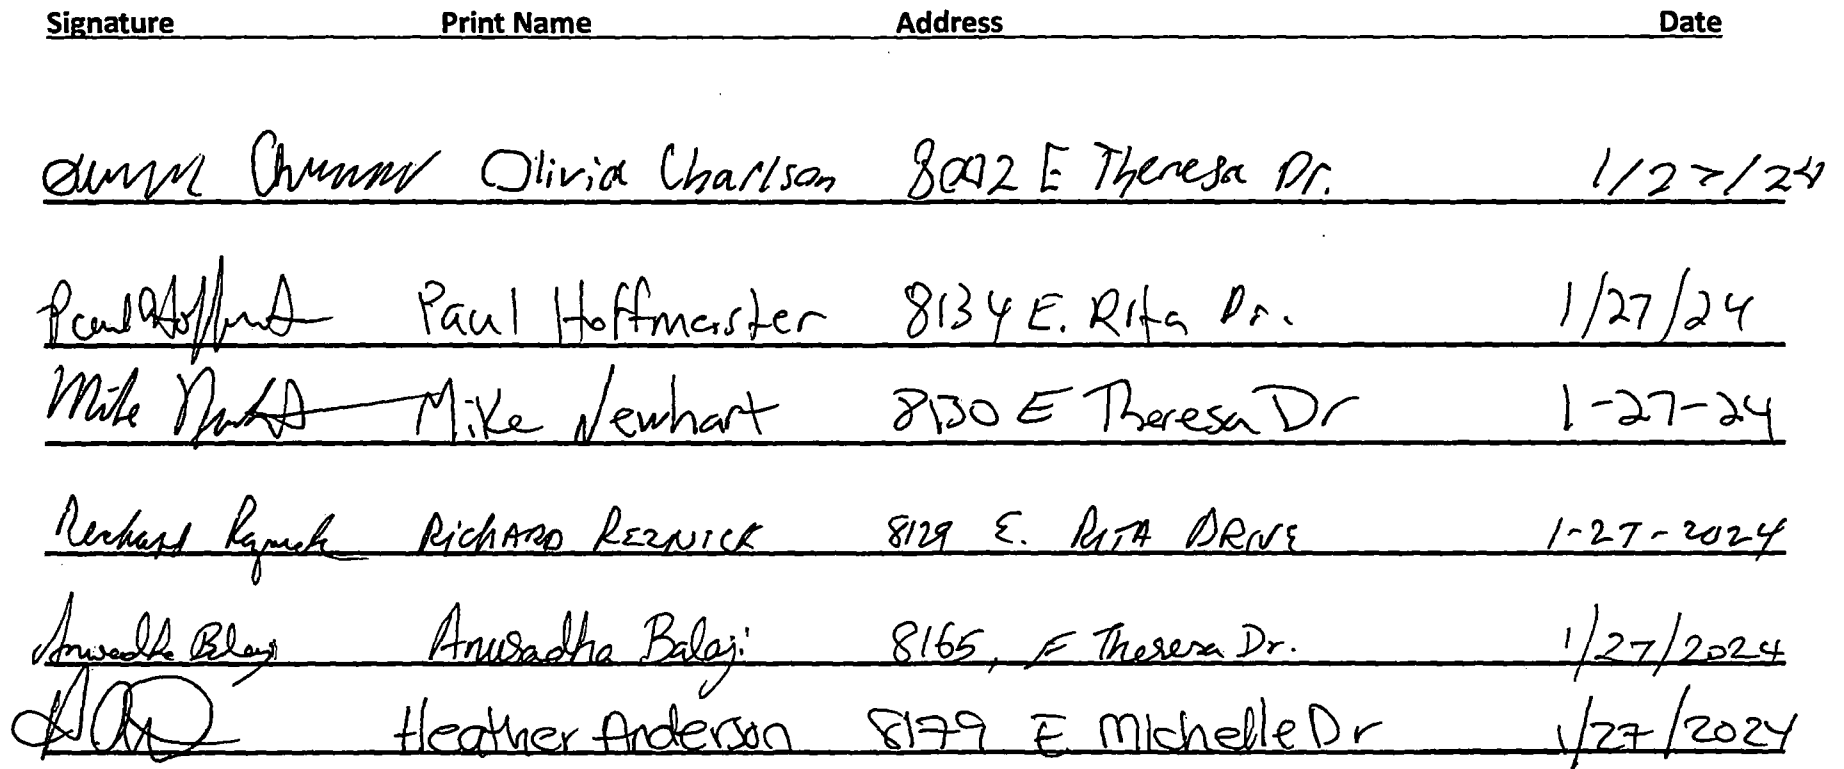 Signature Print Name Address Date
Olivia Charlson 8002 E Theresa Dr. 1/27/24
Paul Hoffmaster Paul Hoffmaster 8134 E. Rita Dr. 1/27/24
Mike Newhart Mike Newhart 8130 E Theresa Dr 1-27-24
Richard Reznick RICHARD REZNICK 8129 E. RITA DRIVE 1-27-2024
Anuradha Balaji Anuradha Balaji 8165, E Theresa Dr. 1/27/2024
Heather Anderson 8179 E Michelle Dr 1/27/2024